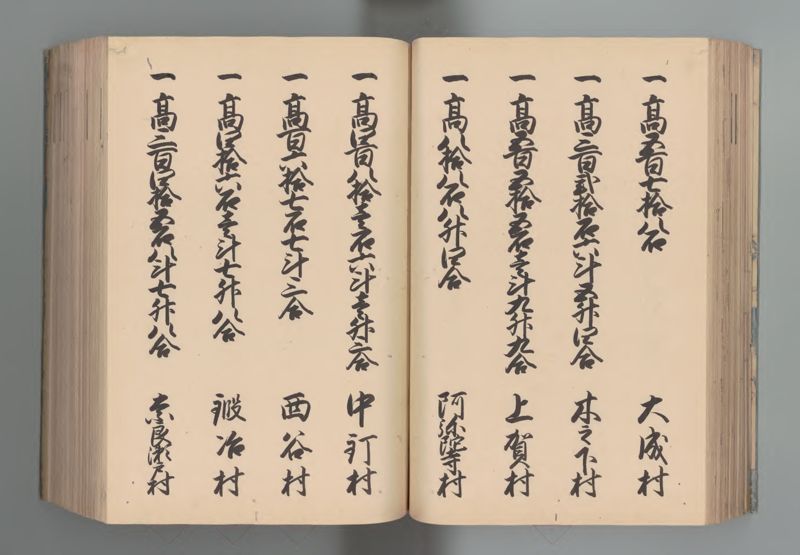 一高五百七拾八石 大成村
一高三百弐拾石六斗五升四合 木之下村
一高五百五拾五石壱斗九升九合 上賀村
一高八拾八石八升四合 阿弥陀寺村
一高四百八拾壱石六斗壱升二合 中町村
一高百六拾七石七斗三合 西谷村
一高四拾六石壱斗七升八合 鍛冶村
一高三百四拾五石八斗七升八合 奈良瀬戸村